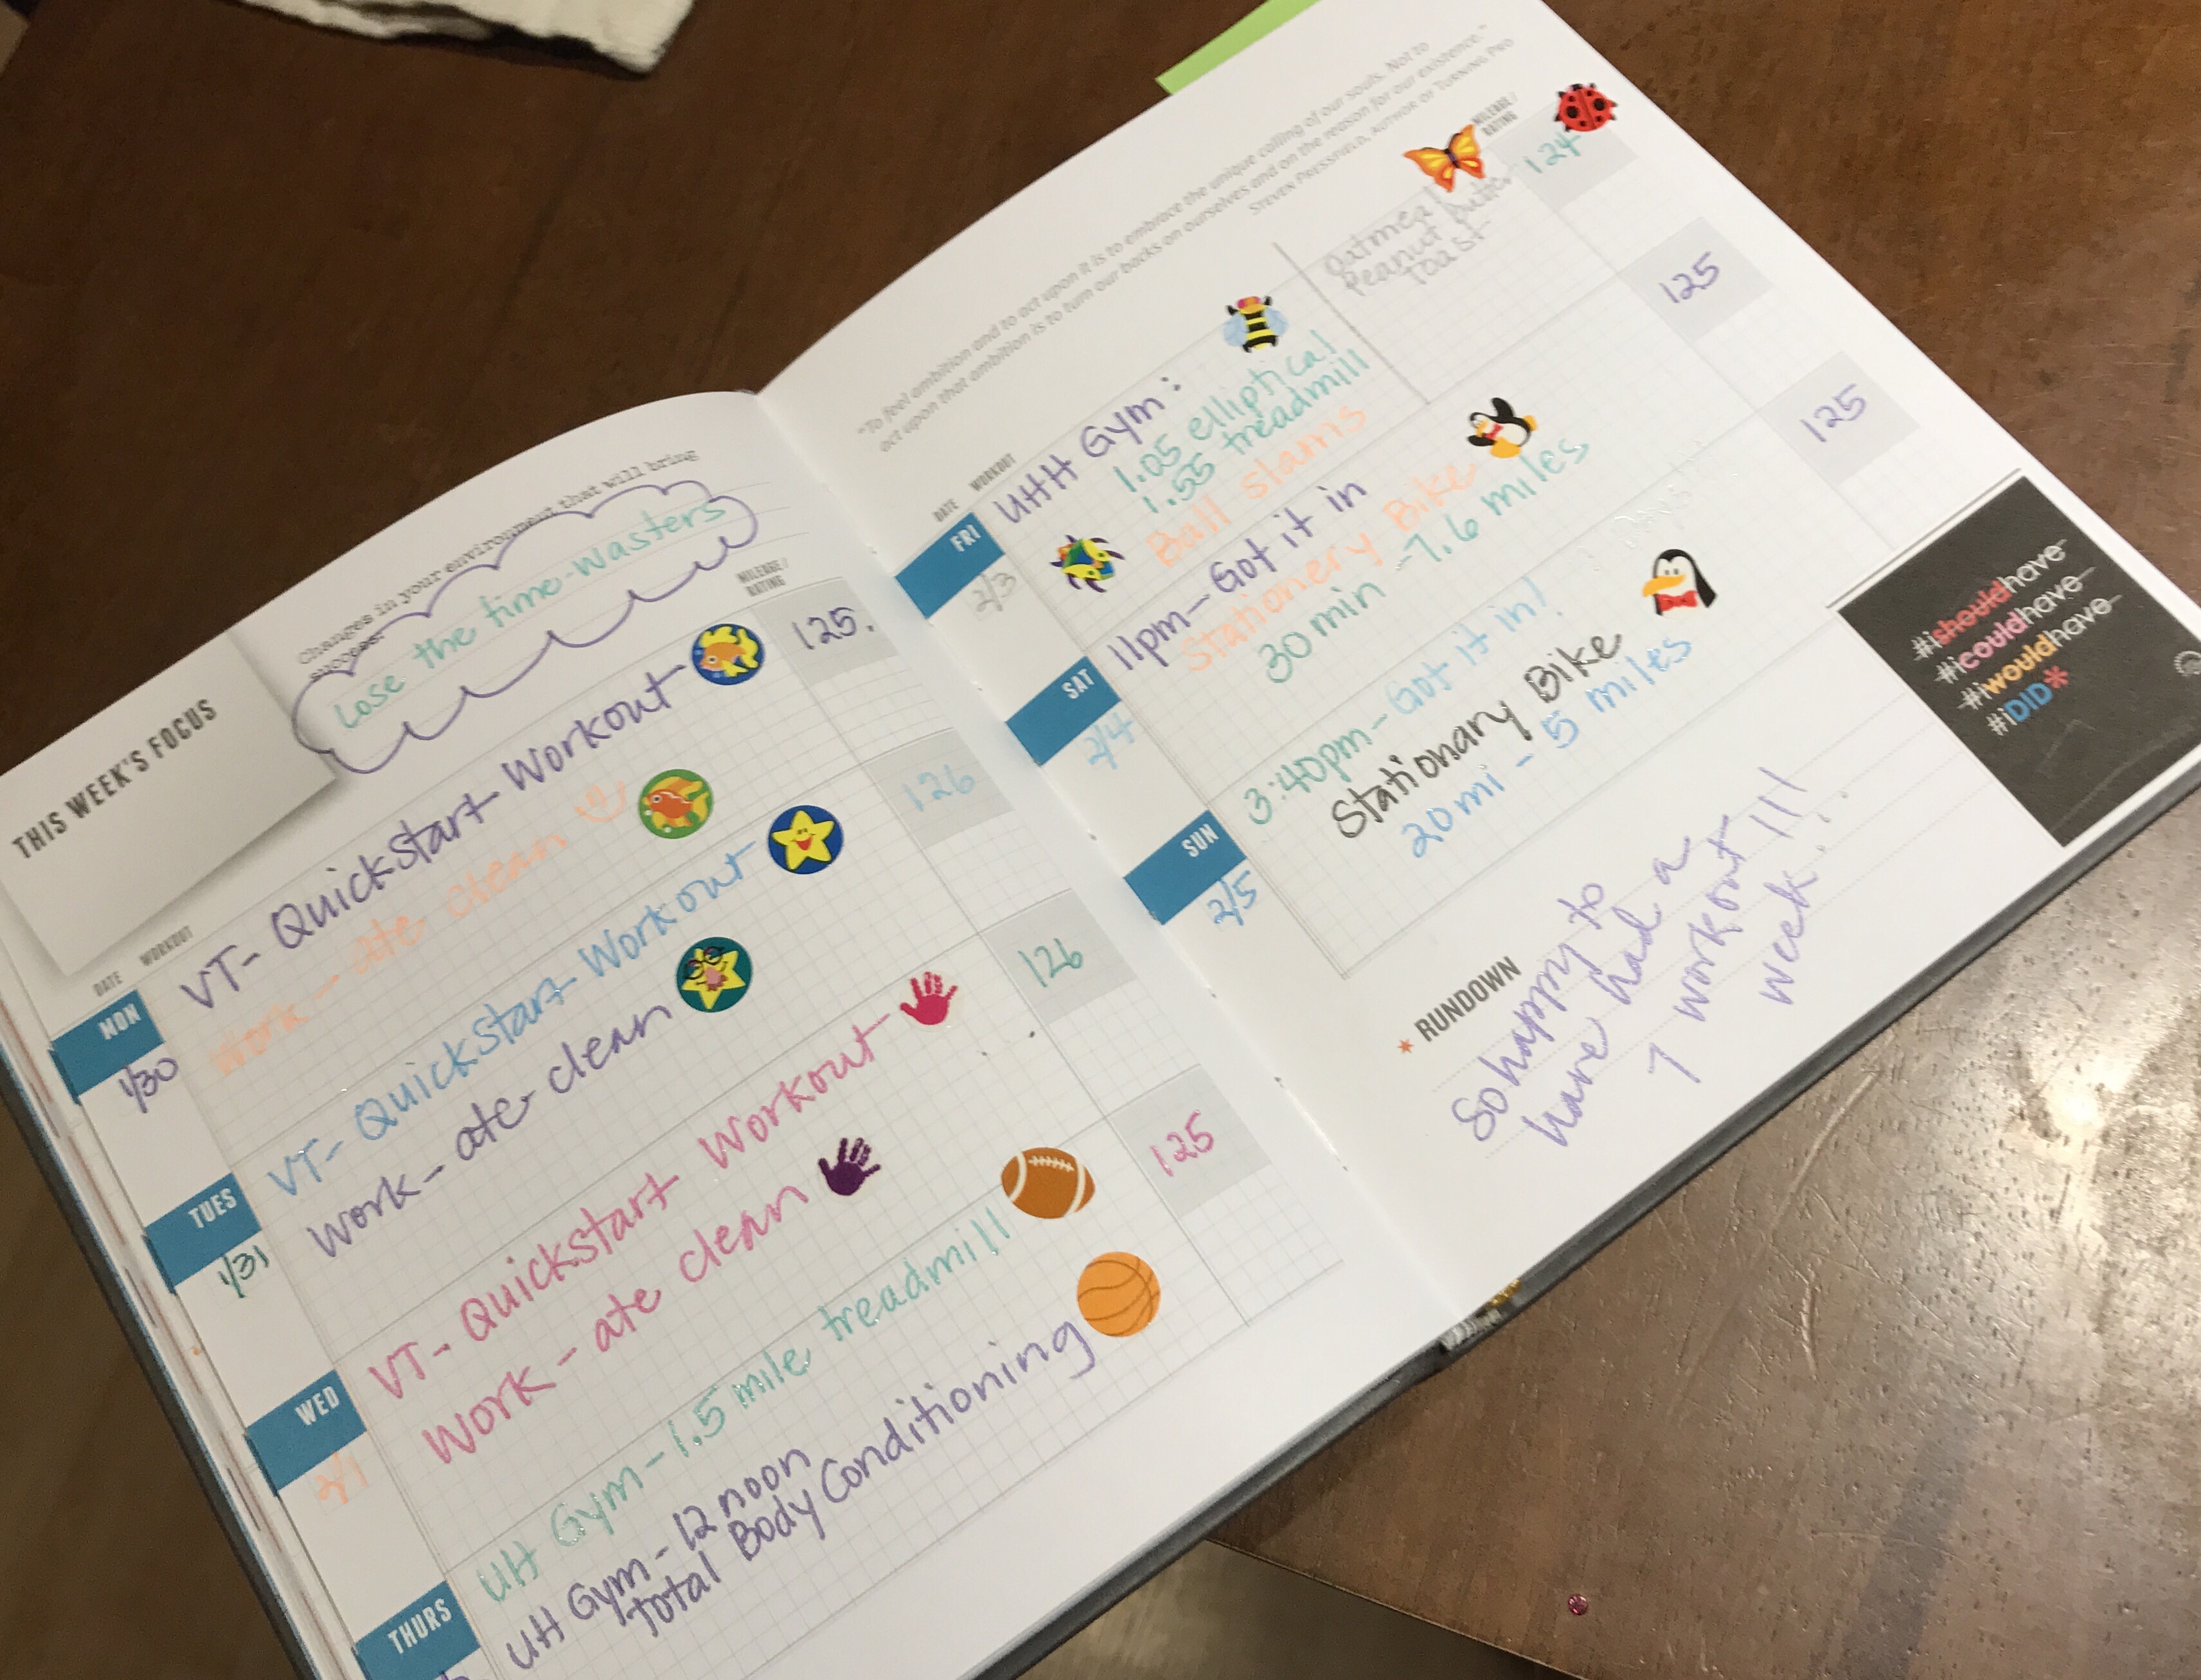 THIS WEEK'S FOCUS
Changes in your environment that will bring
success:
Lose the time-wasters
DATE WORKOUT
MILEAGE/
RATING
MON
1/30
VT- Quickstart Workout
125.
Work - ate clean
TUES
1/31
VT- Quickstart Workout
126
Work - ate clean
WED
2/1
VT- Quickstart Workout
126
Work - ate clean
THURS
UH Gym - 1.5 mile treadmill
125
UH Gym - 12 noon
Total Body Conditioning
"To feel ambition and to act upon it is to embrace the unique calling of our souls. Not to
act upon that ambition is to turn our backs on ourselves and on the reason for our existence."
STEVEN PRESSFIELD, AUTHOR OF TURNING PRO
DATE WORKOUT
MILEAGE/
RATING
FRI
2/3
UHH Gym:
1.05 elliptical
1.55 treadmill
Ball slams
Oatmeal
Peanut butter
Toast
124
SAT
2/4
11pm - Got it in
Stationery Bike
30 min - 7.6 miles
125
SUN
2/5
3:40pm - Got it in!
Stationary Bike
20 mi - 5 miles
125
#ishouldhave
#icouldhave
#iwouldhave
#iDID*
* RUNDOWN
So happy to
have had a
7 workout
week!!!